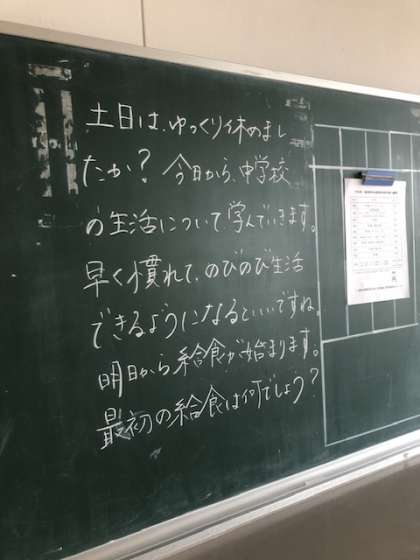 土日は、ゆっくり休めまし
たか？今日から、中学校
の生活について、学んでいきます。
早く慣れて、のびのび生活
できるようになるといいですね。
明日から給食が始まります。
最初の給食は何でしょう？